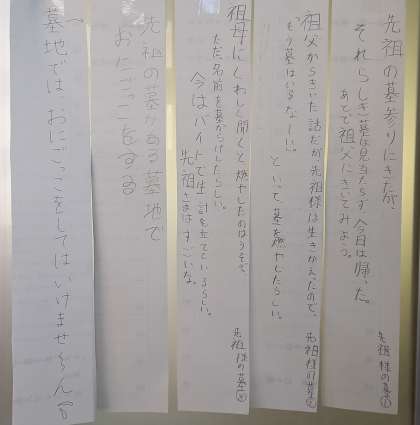 先祖の墓参りにきたが、
それらしき墓は見当たらず、今日は帰った。
あとで祖父にきいてみよう。
先祖様の墓①
祖父からきいた話だが先祖様は生きかえったので、
「もう墓はいらなーい。」といって、墓を燃やしたらしい。
先祖様の墓②
祖母にくわしく聞くと燃やしたのはうそで、
ただ、名前を墓からけしたらしい。
今はバイトで生計を立てているらしい。
先祖さまはすごいな。
先祖様の墓③
先祖の墓がある墓地で
おにごっこをする
墓地では、おにごっこをしてはいけませ〜ん